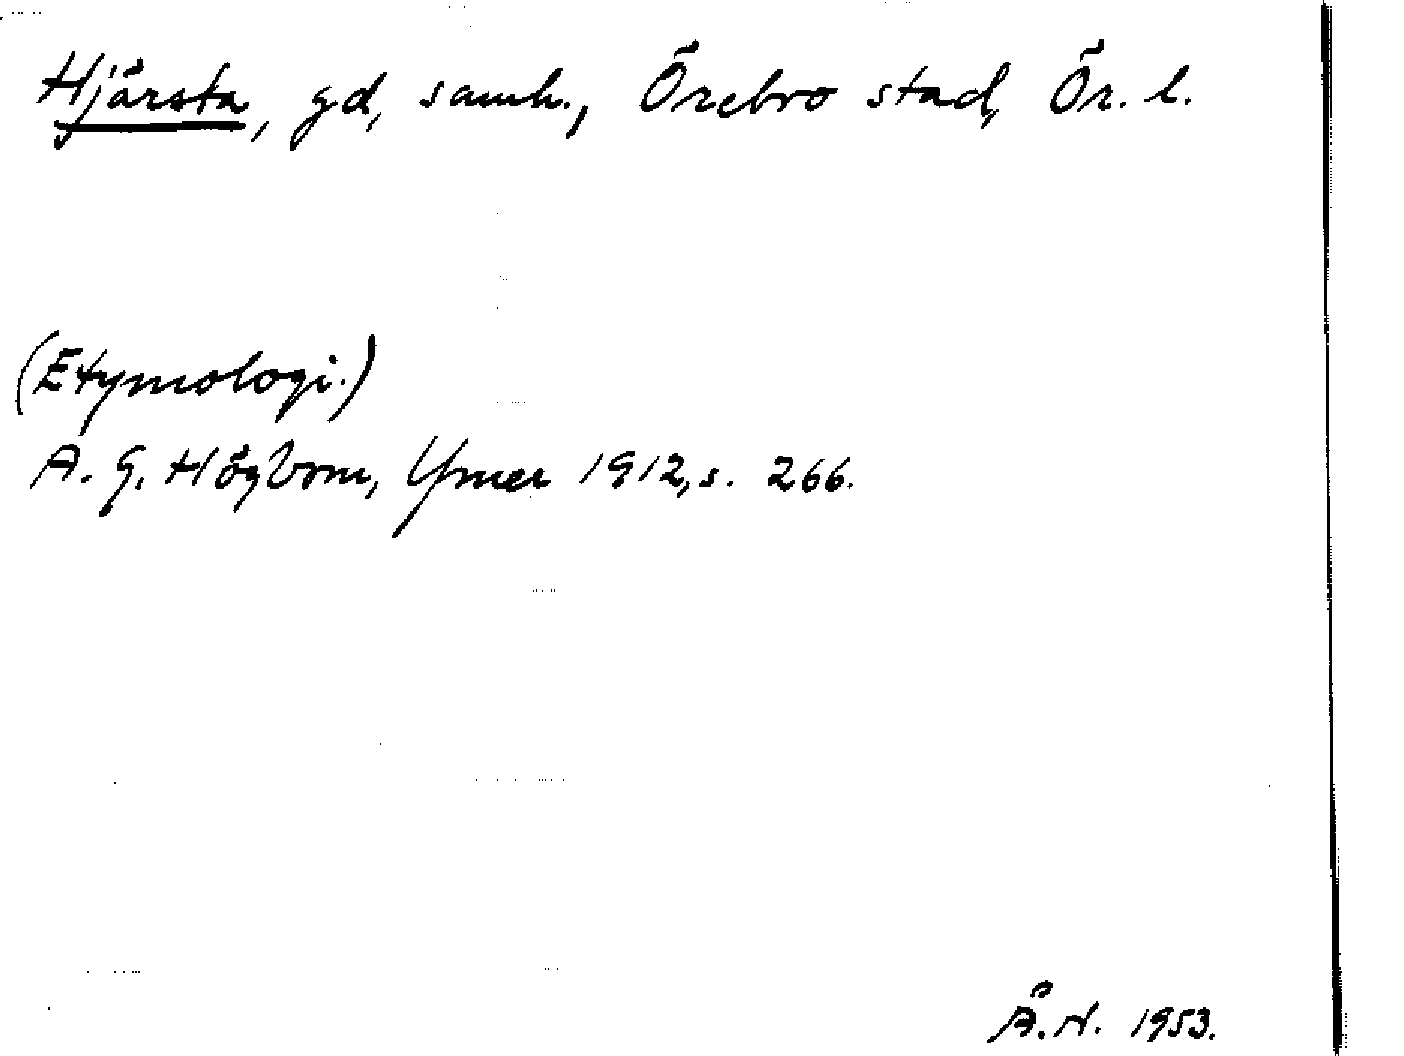 Hjärsta, gd, samh., Örebro stad, Ör. l.
(Etymologi.)
A. G. Högbom, Ymer 1912, s. 266.
Å. N. 1953.